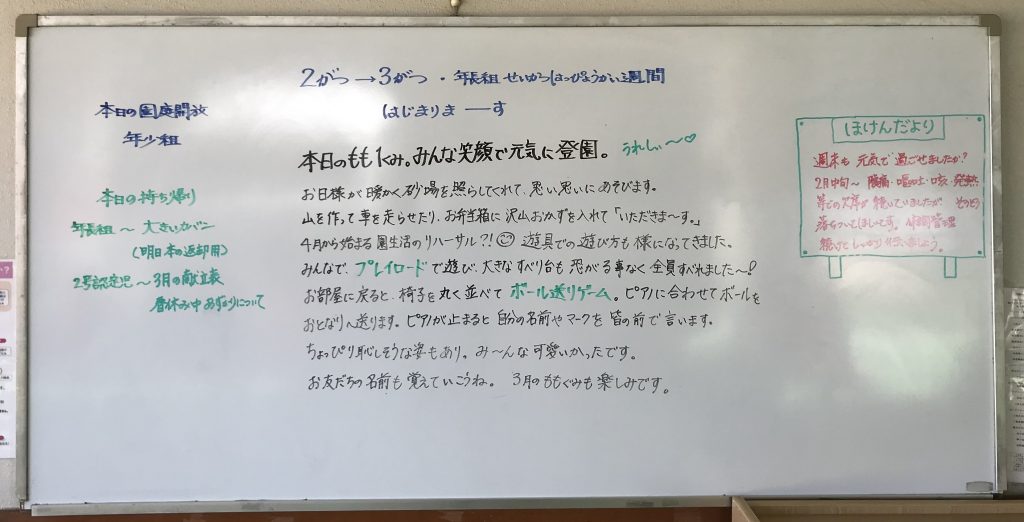 2がつ→3がつ・年長組 せいかつはっぴょうかい週間
はじまりま――す
本日の園庭開放
年少組
本日の持ち帰り
年長組～大きいカバン
(明日本の返却用)
2号認定児～3月の献立表
春休み中あずかりについて
本日のもも1ぐみ。みんな笑顔で元気に登園。うれしぃ～♡
お日様が暖かく砂場を照らしてくれて、思い思いにあそびます。
山を作って車を走らせたり、お弁当箱に沢山おかずを入れて「いただきま～す。」
4月から始まる園生活のリハーサル?!☺遊具での遊び方も様になってきました。
みんなで、プレイロードで遊び、大きなすべり台も恐がる事なく全員すべれました～!
お部屋に戻ると、椅子を丸く並べてボール送りゲーム。ピアノに合わせてボールを
おとなりへ送ります。ピアノが止まると自分の名前やマークを皆の前で言います。
ちょっぴり恥しそうな姿もあり。み～んな可愛いかったです。
お友だちの名前も覚えていこうね。 3月のももぐみも楽しみです。
ほけんだより
週末も元気で過ごせましたか?
2月中旬～腹痛・嘔吐・咳・発熱
等での欠席が続いていましたが そろそろ
落ちついてほしいです。体調管理
続けてしっかり行いましょう。